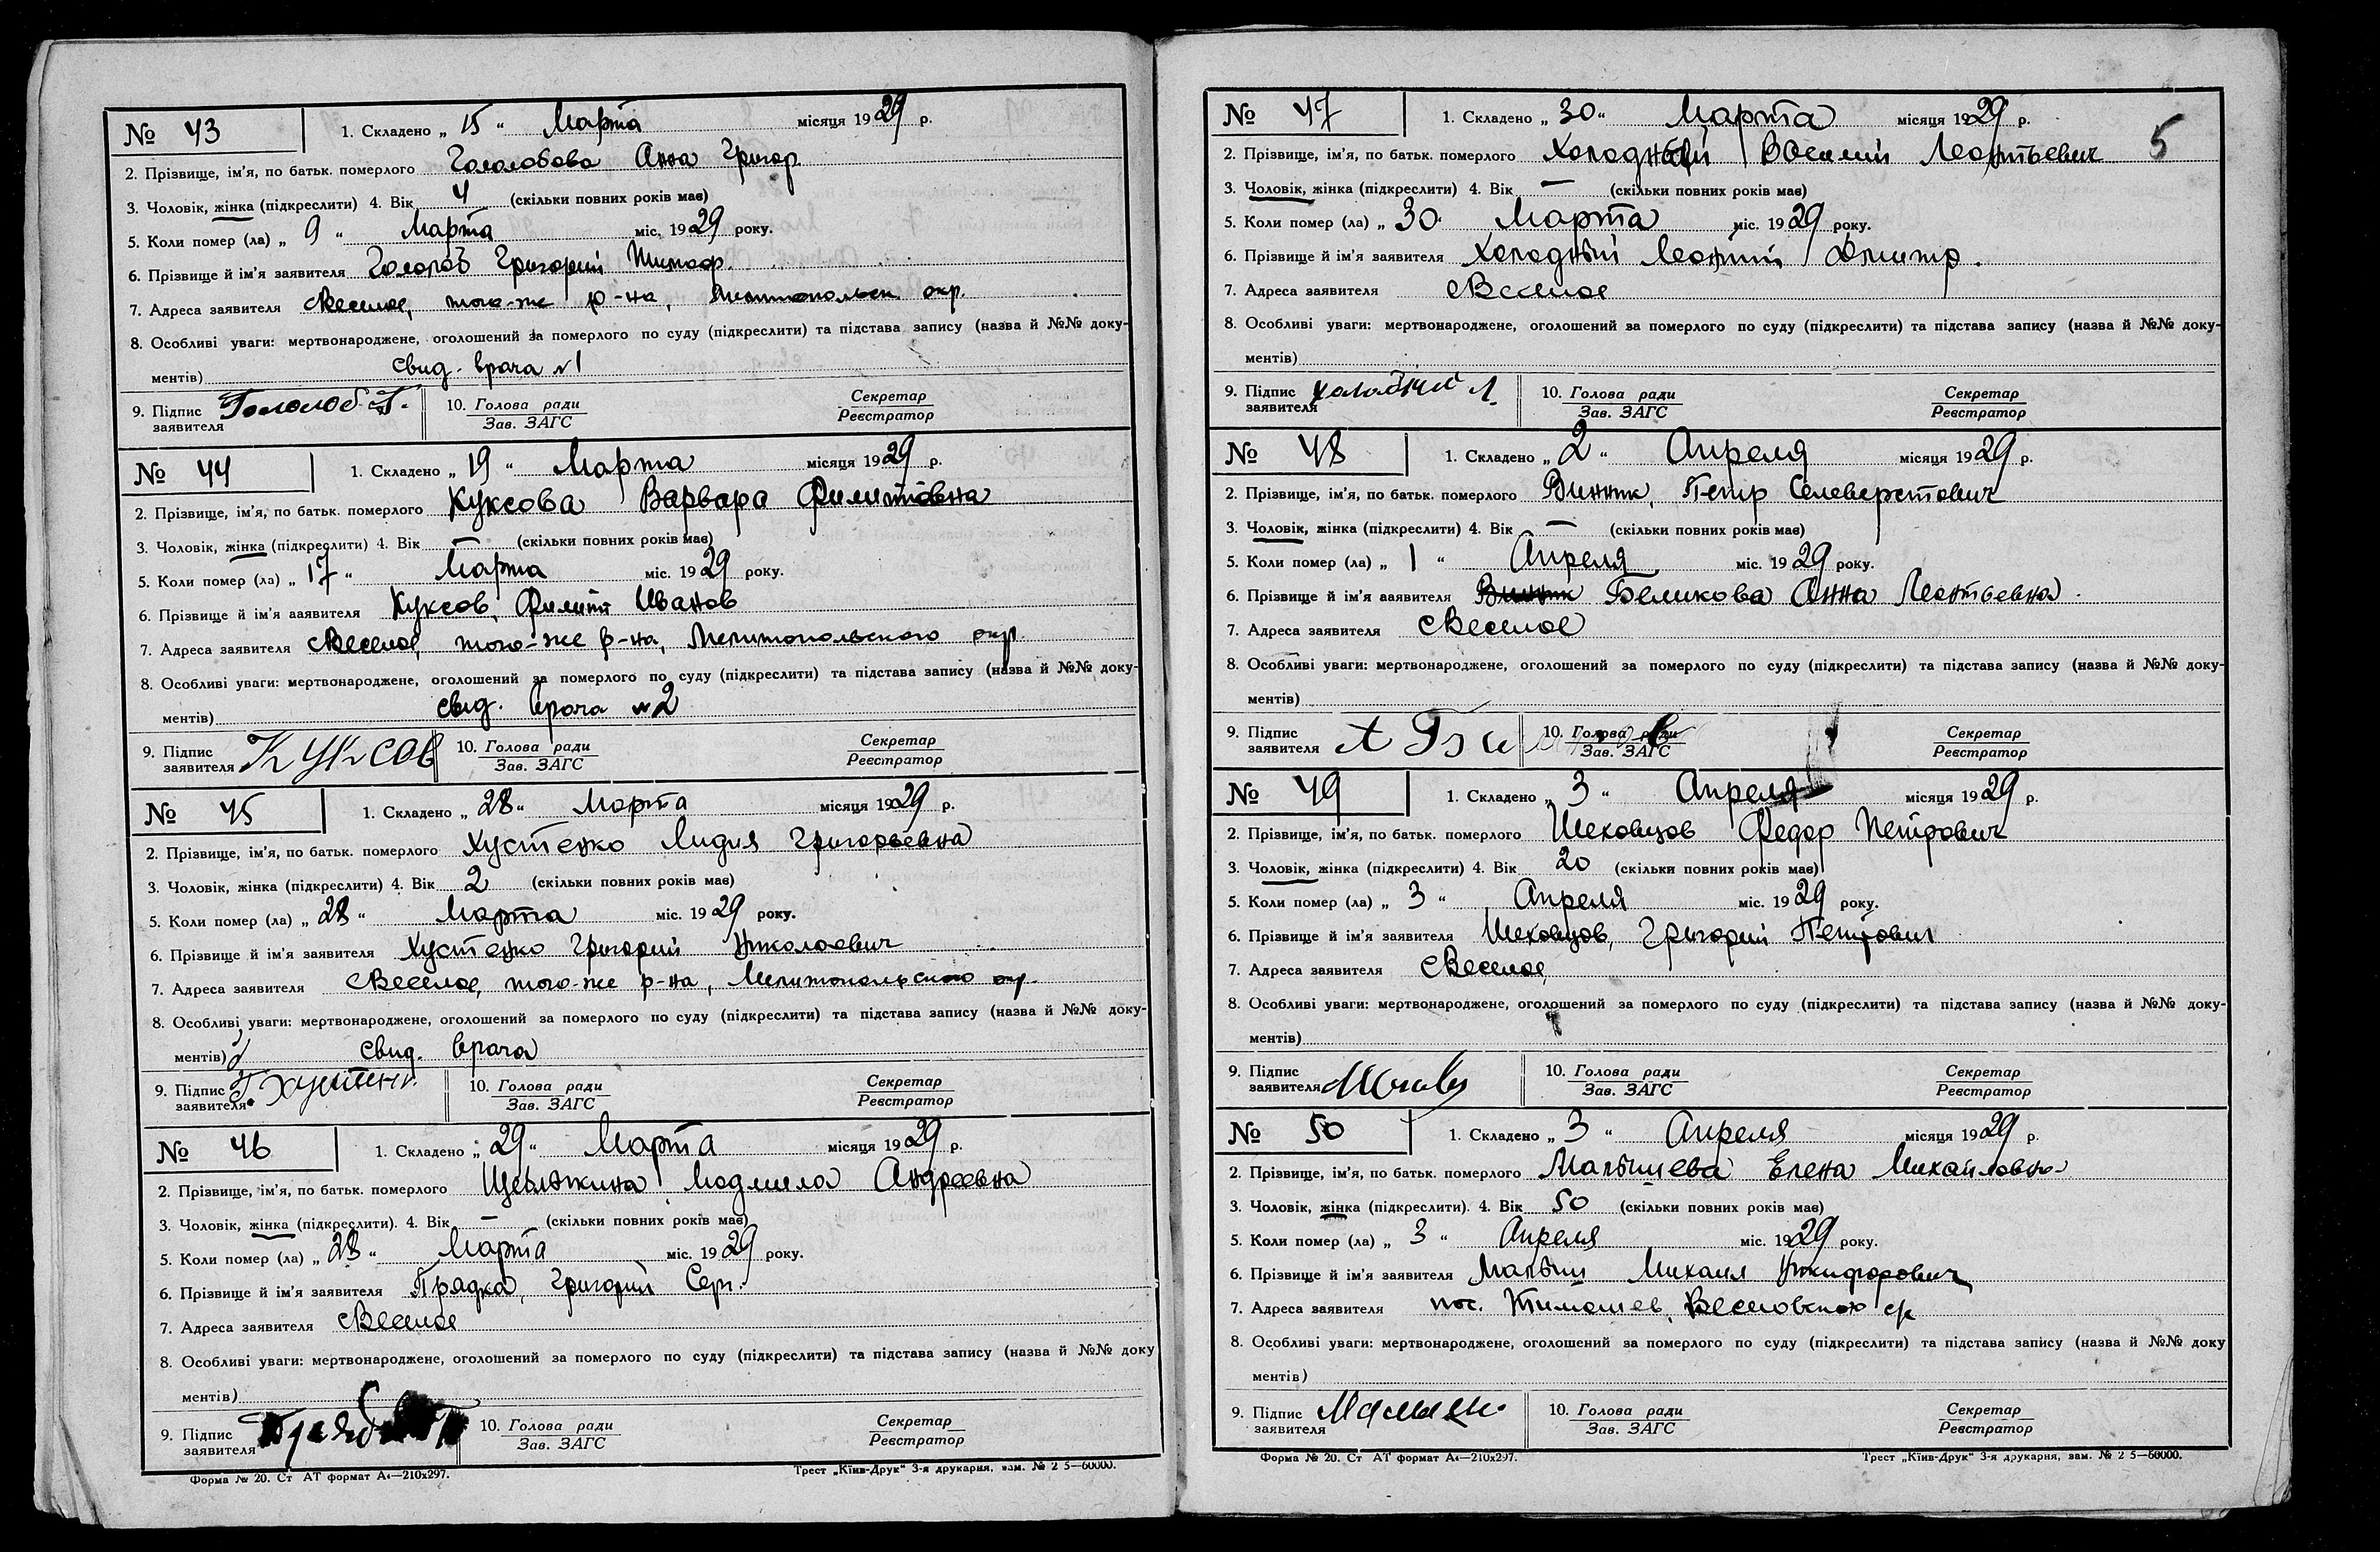 № 43 1. Складено „ 15 “ Марта місяця 1929 р.
2. Прізвище, ім'я, по батьк. померлого Гололобова Анна Григор.
3. Чоловік, жінка (підкреслити) 4. Вік 4 (скільки повних років має)
5. Коли помер (ла) „ 9 “ Марта міс. 1929 року.
6. Прізвище й ім'я заявителя Гололоб Григорий Тимоф.
7. Адреса заявителя с Веселое, того-же р-на, Мелитопольск. окр.
8. Особливі уваги: мертвонароджене, оголошений за померлого по суду (підкреслити) та підстава запису (назва й №№ доку-
ментів) свид. врача №1
9. Підпис заявителя Гололоб Г. 10. Голова ради Зав. ЗАГС Секретар Реєстратор
№ 44 1. Складено „ 19 “ Марта місяця 1929 р.
2. Прізвище, ім'я, по батьк. померлого Куксова Варвара Филиповна
3. Чоловік, жінка (підкреслити) 4. Вік — (скільки повних років має)
5. Коли помер (ла) „ 17 “ Марта міс. 1929 року.
6. Прізвище й ім'я заявителя Куксов, Филипп Иванов
7. Адреса заявителя с Веселое, того-же р-на, Мелитопольского окр.
8. Особливі уваги: мертвонароджене, оголошений за померлого по суду (підкреслити) та підстава запису (назва й №№ доку-
ментів) свид. врача №2
9. Підпис заявителя Куксов 10. Голова ради Зав. ЗАГС Секретар Реєстратор
№ 45 1. Складено „ 28 “ Марта місяця 1929 р.
2. Прізвище, ім'я, по батьк. померлого Хустенко Лидия Григорьевна
3. Чоловік, жінка (підкреслити) 4. Вік 2 (скільки повних років має)
5. Коли помер (ла) „ 28 “ Марта міс. 1929 року.
6. Прізвище й ім'я заявителя Хустенко Григорий Николаевич
7. Адреса заявителя с Веселое, того-же р-на, Мелитопольского окр.
8. Особливі уваги: мертвонароджене, оголошений за померлого по суду (підкреслити) та підстава запису (назва й №№ доку-
ментів) свид. врача
9. Підпис заявителя Г Хустенк. 10. Голова ради Зав. ЗАГС Секретар Реєстратор
№ 46 1. Складено „ 29 “ Марта місяця 1929 р.
2. Прізвище, ім'я, по батьк. померлого Людмила Андреевна
3. Чоловік, жінка (підкреслити). 4. Вік — (скільки повних років має)
5. Коли помер (ла) „ 28 “ Марта міс. 1929 року.
6. Прізвище й ім'я заявителя Прядка, Григорий Серг.
7. Адреса заявителя с Веселое
8. Особливі уваги: мертвонароджене, оголошений за померлого по суду (підкреслити) та підстава запису (назва й №№ доку
ментів)
9. Підпис заявителя 10. Голова ради Зав. ЗАГС Секретар Реєстратор
Форма № 20. Ст АТ формат А4—210х297. Трест „Київ-Друк“ 3-я друкарня, зам. № 2 5—60000.
5
№ 47 1. Складено „ 30 “ Марта місяця 1929 р.
2. Прізвище, ім'я, по батьк. померлого Холодный Василий Леонтьевич
3. Чоловік, жінка (підкреслити) 4. Вік — (скільки повних років має)
5. Коли помер (ла) „ 30 “ Марта міс. 1929 року.
6. Прізвище й ім'я заявителя Холодный Леонтий Дмитр.
7. Адреса заявителя с Веселое
8. Особливі уваги: мертвонароджене, оголошений за померлого по суду (підкреслити) та підстава запису (назва й №№ доку-
ментів)
9. Підпис заявителя Холодний Л. 10. Голова ради Зав. ЗАГС Секретар Реєстратор
№ 48 1. Складено „ 2 “ Апреля місяця 1929 р.
2. Прізвище, ім'я, по батьк. померлого Винник, Петр Селеверстович
3. Чоловік, жінка (підкреслити) 4. Вік — (скільки повних років має)
5. Коли помер (ла) „ 1 “ Апреля міс. 1929 року.
6. Прізвище й ім'я заявителя Винник Беликова Анна Леонтьевна.
7. Адреса заявителя с Веселое
8. Особливі уваги: мертвонароджене, оголошений за померлого по суду (підкреслити) та підстава запису (назва й №№ доку-
ментів)
9. Підпис заявителя 10. Голова ради Зав. ЗАГС Секретар Реєстратор
№ 49 1. Складено „ 3 “ Апреля місяця 1929 р.
2. Прізвище, ім'я, по батьк. померлого Шеховцов Федор Петрович
3. Чоловік, жінка (підкреслити) 4. Вік 20 (скільки повних років має)
5. Коли помер (ла) „ 3 “ Апреля міс. 1929 року.
6. Прізвище й ім'я заявителя Шеховцов, Григорий Петрович
7. Адреса заявителя с Веселое
8. Особливі уваги: мертвонароджене, оголошений за померлого по суду (підкреслити) та підстава запису (назва й №№ доку-
ментів)
9. Підпис заявителя 10. Голова ради Зав. ЗАГС Секретар Реєстратор
№ 50 1. Складено „ 3 “ Апреля місяця 1929 р.
2. Прізвище, ім'я, по батьк. померлого Малышева Елена Михайловна
3. Чоловік, жінка (підкреслити). 4. Вік 50 (скільки повних років має)
5. Коли помер (ла) „ 3 “ Апреля міс. 1929 року.
6. Прізвище й ім'я заявителя Малыш Михаил Никифорович
7. Адреса заявителя пос. Тимошев, Веселовского с/с
8. Особливі уваги: мертвонароджене, оголошений за померлого по суду (підкреслити) та підстава запису (назва й №№ доку
ментів)
9. Підпис заявителя 10. Голова ради Зав. ЗАГС Секретар Реєстратор
Форма № 20. Ст АТ формат А4—210х297. Трест „Київ-Друк“ 3-я друкарня, зам. № 2 5—60000.